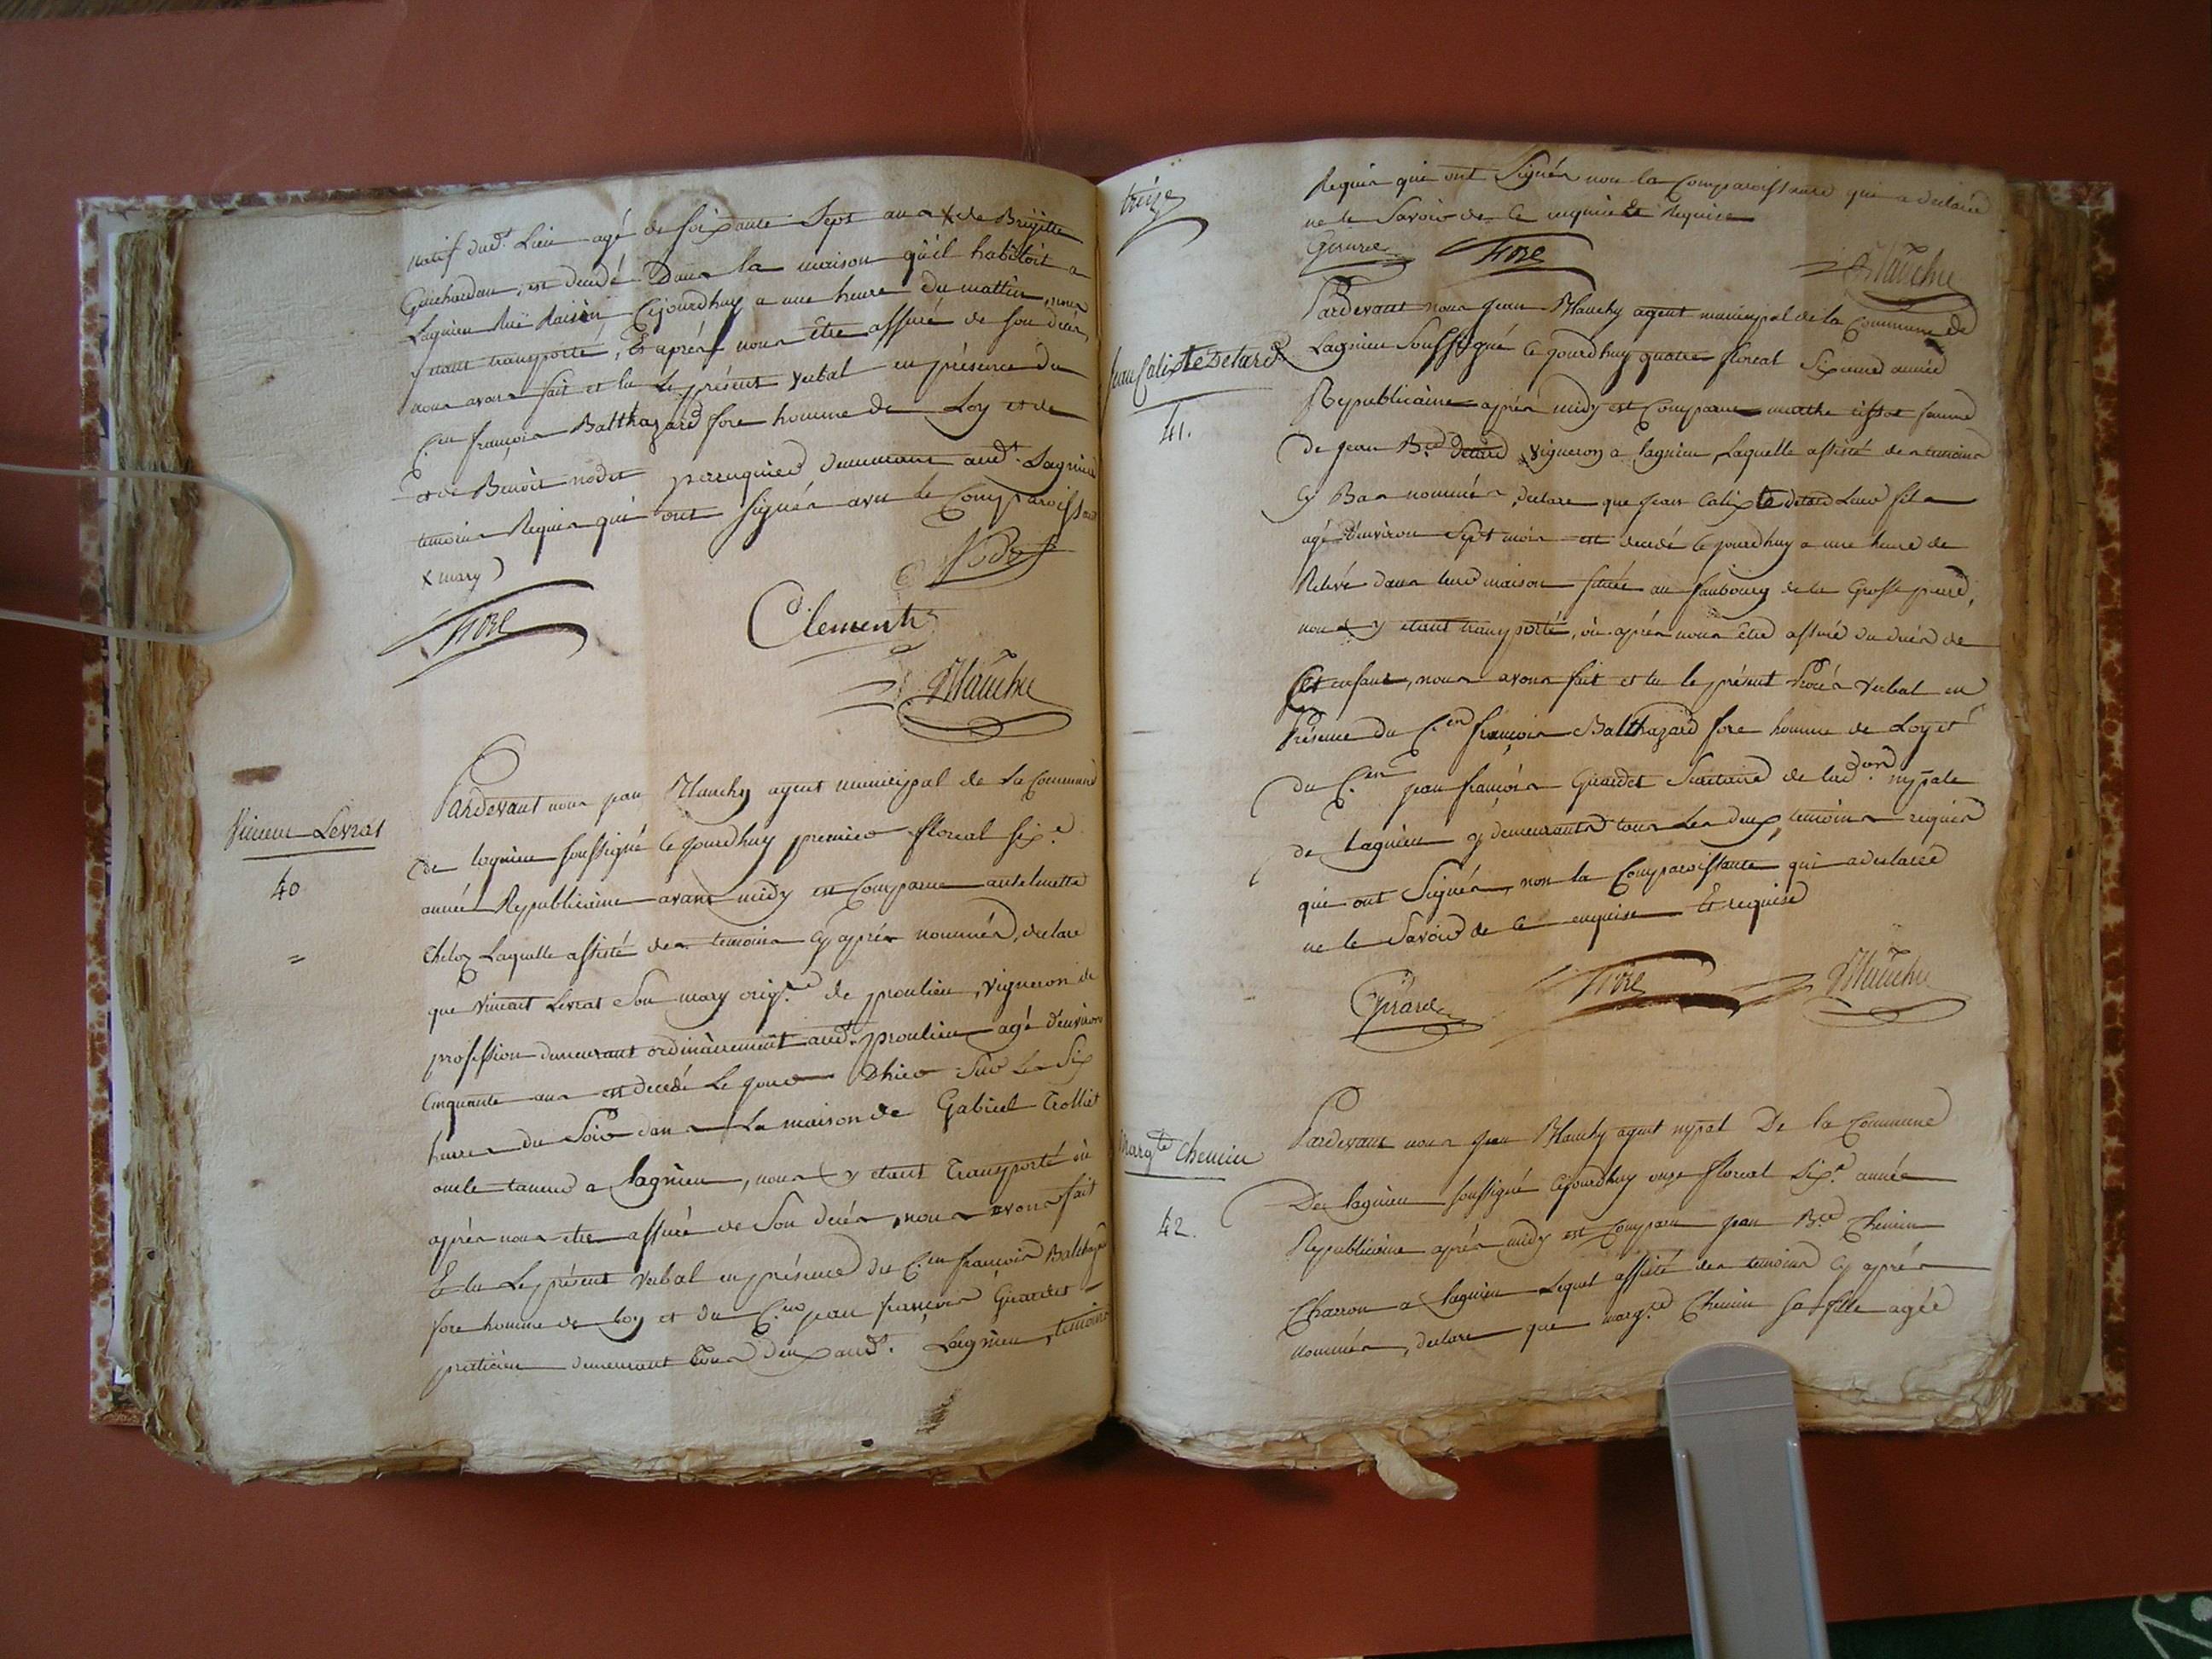 natif dud.t Lieu agé de soixante Sept ans X de Brigitte
Guichardan, est decedé Dans la maison qu'il habitoit a
Lagnieu Ruë Raisin Cejourdhuy a une heure du mattin, nous
y etant transporté, Et aprés nous être assuré de son decés,
nous avons fait et lu le présent verbal en présence du
C.en françois Balthazard fore homme de Loy et de
et de Benoit nodet perruquier demeurant aud.t Lagnieu
temoins Requis qui ont signés avec le Comparoissant
X mary
fore
Nodet
Clement
Blanchy
Vincent Levrat
40
=
Pardevant nous jean Blanchy agent municipal de la Commune
de lagnieu soussigné Cejourdhuy premier floreal six.e
année Republicaine avant midy est Comparue antelmette
Laquelle assisté des temoins cy aprés nommés, declare
que vincent Levrat Son mary orig.re de proulieu, vigneron de
profession demeurant ordinairement aud.t proulieu agé d'environ
Cinquante ans est decedé Le jour Dhier Sur Les Six
heures du Soir dans La maison de Gabriel Trolliet
oncle tanneur a Lagnieu, nous y etant Transporté où
aprés nous etre assuré de Son decés, nous avons fait
Et lu Le présent verbal en présence du C.en françois Balthazar
fore homme de loy et du C.en jean françois Girardet
praticien demeurant Tous deux aud.t Lagnieu, temoins
treize
Requis qui ont Signés non la Comparoissante qui a declaré
ne le Savoir de ce enquise Et Requise
Girardet
fore
Blanchy
Jean Calixte Detard
41.
Pardevant nous jean Blanchy agent municipal de la Commune de
Lagnieu Soussigné Cejourdhuy quatre floreal Sixieme année
Republicaine aprés midy est Comparue marthe tissot femme
de jean B.te Detard vigneron a lagnieu, Laquelle assisté des temoins
cy Bas nommés, declare que jean Calixte detard Leur fils
agé d'environ Sept mois est decedé Cejourdhuy a une heure de
Relevé dans leur maison situé au faubourg de la Grosse pierre,
nous y etant transporté, où aprés nous être assuré du decés de
Cet enfant, nous avons fait et lu le présent Procés verbal en
Présence du C.en françois Balthazard fore homme de Loy et
du C.en jean françois Girardet Secretaire de lad.on mp̄ale
de Lagnieu y demeurants tous Les deux, temoins requis
qui ont Signés, non la Comparoissante qui a declaré
ne le Savoir de ce enquise Et requise
Girardet
fore
Blanchy
Marg.te Chemin
42.
Pardevant nous jean Blanchy agent mp̄al De la Commune
De lagnieu soussigné Cejourdhuy onze floreal Six.e année
Republicaine aprés midy est Comparu jean B.te Chemin
Charron a Lagnieu Lequel assisté des temoins cy aprés
nommés, declare que marg.te Chemin sa fille agée